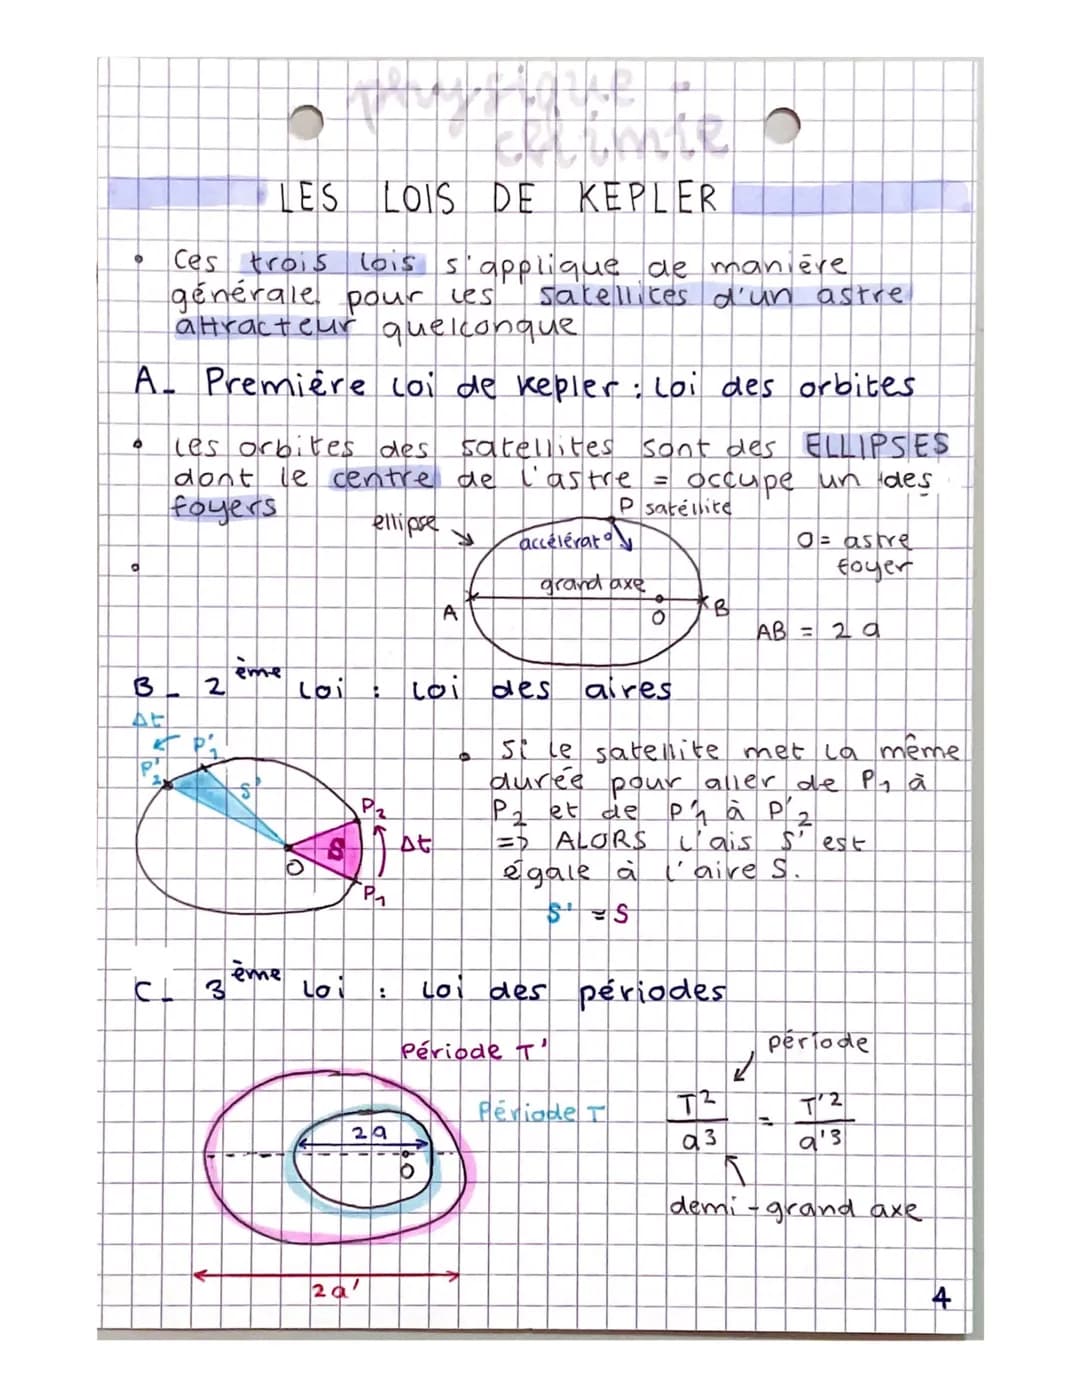 physique
chimie
LES LOIS DE KEPLER
• Ces trois lois s'applique de manière
générale pour les satellites d'un astre
attracteur quelconque
A_ Première loi de kepler : loi des orbites
• les orbites des satellites sont des ELLIPSES
dont le centre de l'astre = occupe un des
foyers
P satéllite
ellipse
accélérat°
O = astre
foyer
grand axe
A
O
B
AB = 2 a
B_ 2ème loi : loi des aires
Δt
P'1
P'2
S'
P2
S
Δt
O
P1
• Si le satellite met la même
durée pour aller de P1 à
P2 et de P'1 à P'2
=> ALORS l'ais S' est
égale à l'aire S.
S' = S
C_ 3ème loi : loi des périodes
Période T'
période
Période T
T²/a³ = T'²/a'³
2a
O
demi-grand axe
2a'
4